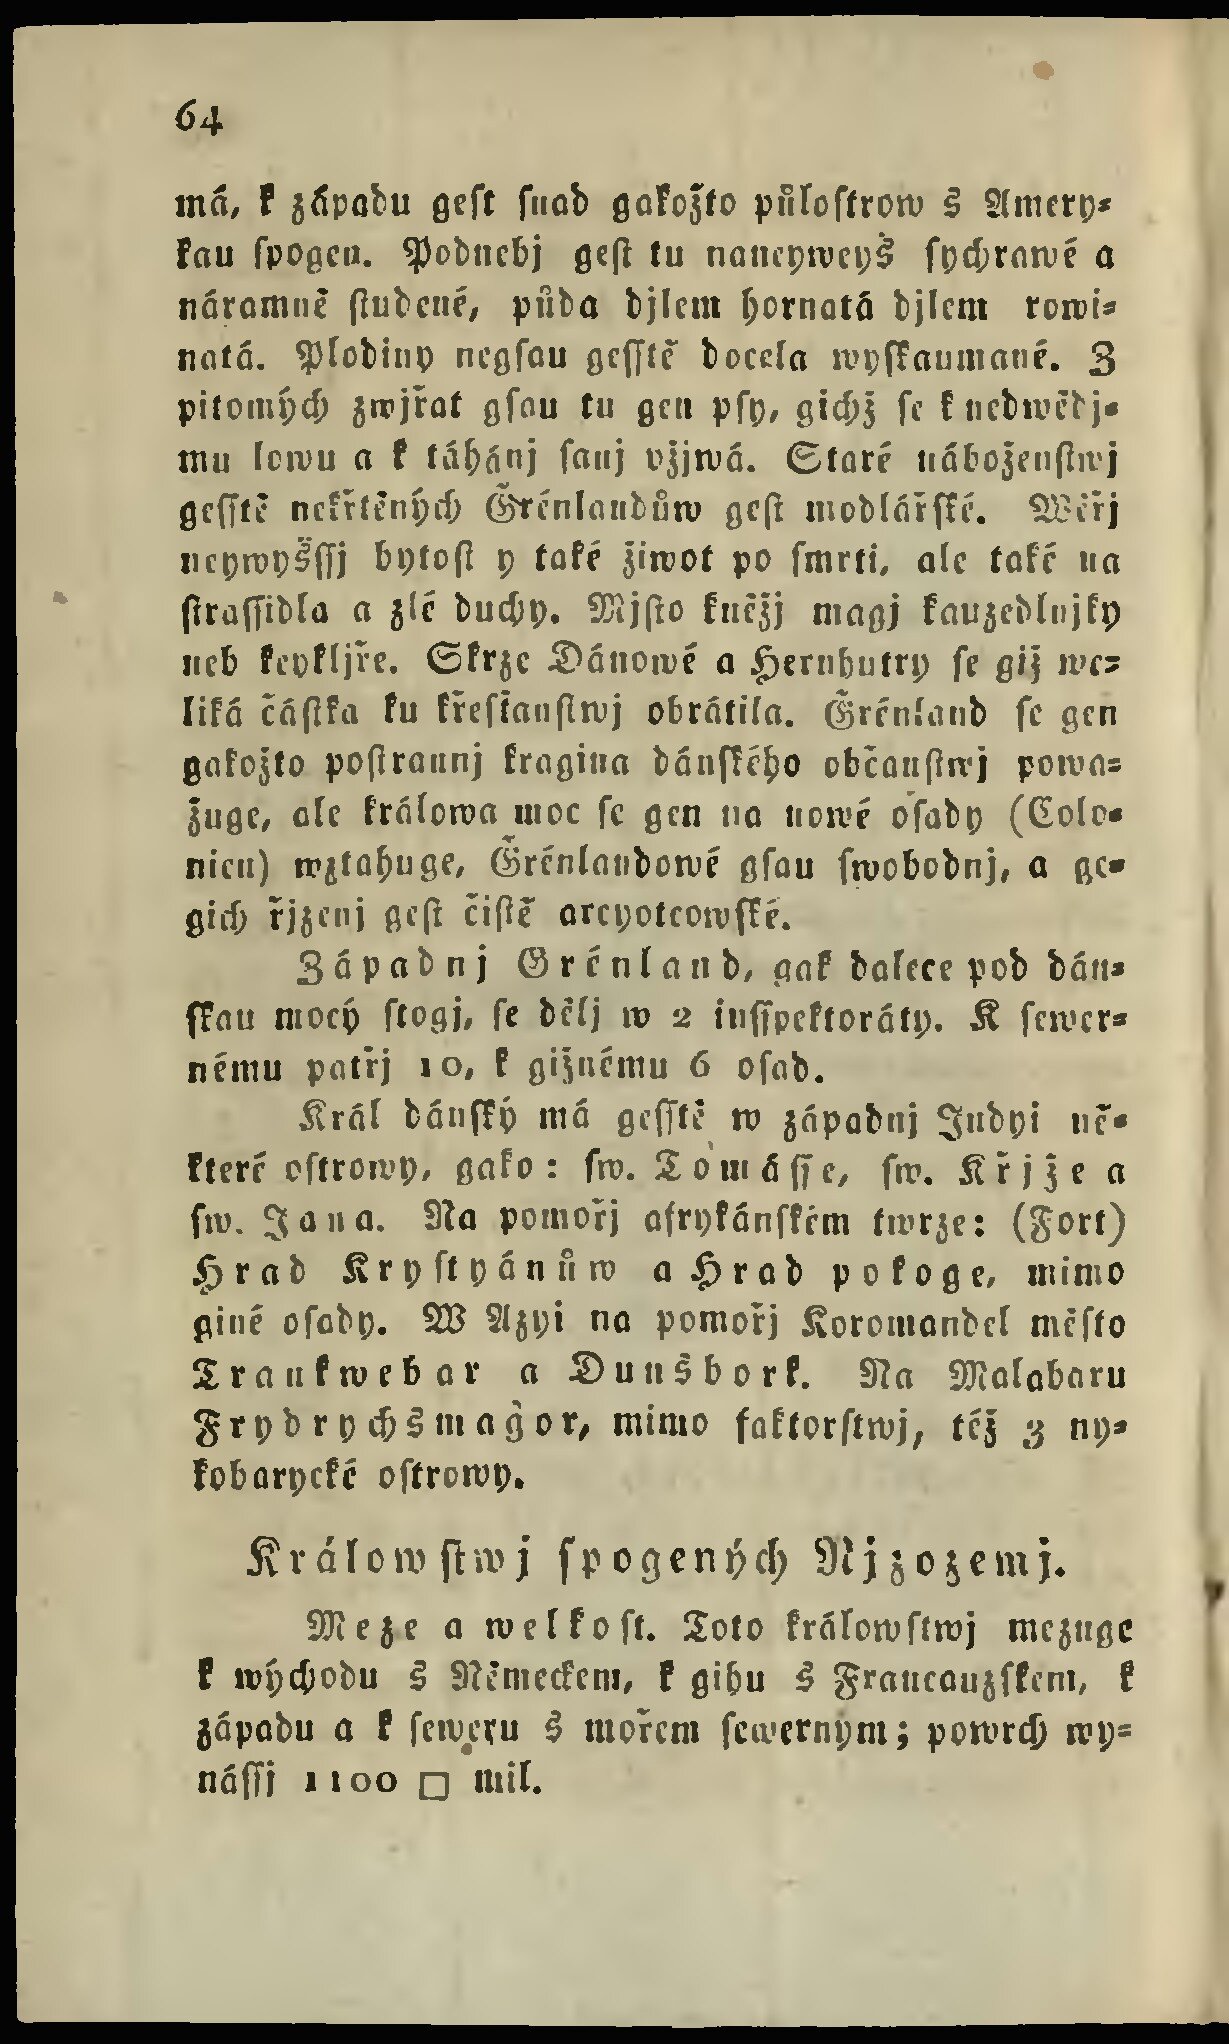 64
má, k západu geſt ſnad gakožto půloſtrow s Amery⸗
kau ſpogen. Podnebj geſt tu naneyweyš ſychrawé a
náramně ſtudené, půda djlem hornatá djlem rowi⸗
natá. Plodiny negſau geſſtě docela wyſkaumané. Z
pitomých zwjřat gſau tu gen pſy, gichž ſe k nedwědj⸗
mu lowu a k táhánj ſanj vžjwá. Staré náboženſtwj
geſſtě nekřtěných Grénlandůw geſt modlářſké. Wěřj
neywyšſſj bytoſt y také žiwot po ſmrti, ale také na
ſtraſſidla a zlé duchy. Mjſto kněžj magj kauzedlnjky
neb keykljře. Skrze Dánowé a Hernhutry ſe giž we⸗
liká čáſtka ku křeſťanſtwj obrátila. Grénland ſe gen
gakožto poſtrannj kragina dánſkého občanſtwj powa⸗
žuge, ale králowa moc ſe gen na nowé oſady (Colo⸗
nien) wztahuge, Grénlandowé gſau ſwobodnj, a ge⸗
gich řjzenj geſt čiſtě arcyotcowſké.
Západnj Grénland, gak dalece pod dán⸗
ſkau mocý ſtogj, ſe dělj w 2 inſſpektoráty. K ſewer⸗
nému patřj 10, k gižnému 6 oſad.
Král dánſký má geſſtě w západnj Indyi ně⸗
které oſtrowy, gako: ſw. Tomáſſe, ſw. Křjže a
ſw. Jana. Na pomořj afrykánſkém twrze: (Fort)
Hrad Kryſtyánůw a Hrad pokoge, mimo
giné oſady. W Azyi na pomořj Koromandel měſto
Trankwebar a Dunšbork. Na Malabaru
Frydrychšmaǧor, mimo faktorſtwj, též 3 ny⸗
kobarycké oſtrowy.
Králowſtwj ſpogených Njzozemj.
Meze a welkoſt. Toto králowſtwj mezuge
k wýchodu s Německem, k gihu s Francauzſkem, k
západu a k ſeweru s mořem ſewernym; powrch wy⸗
náſſj 1100 □ mil.